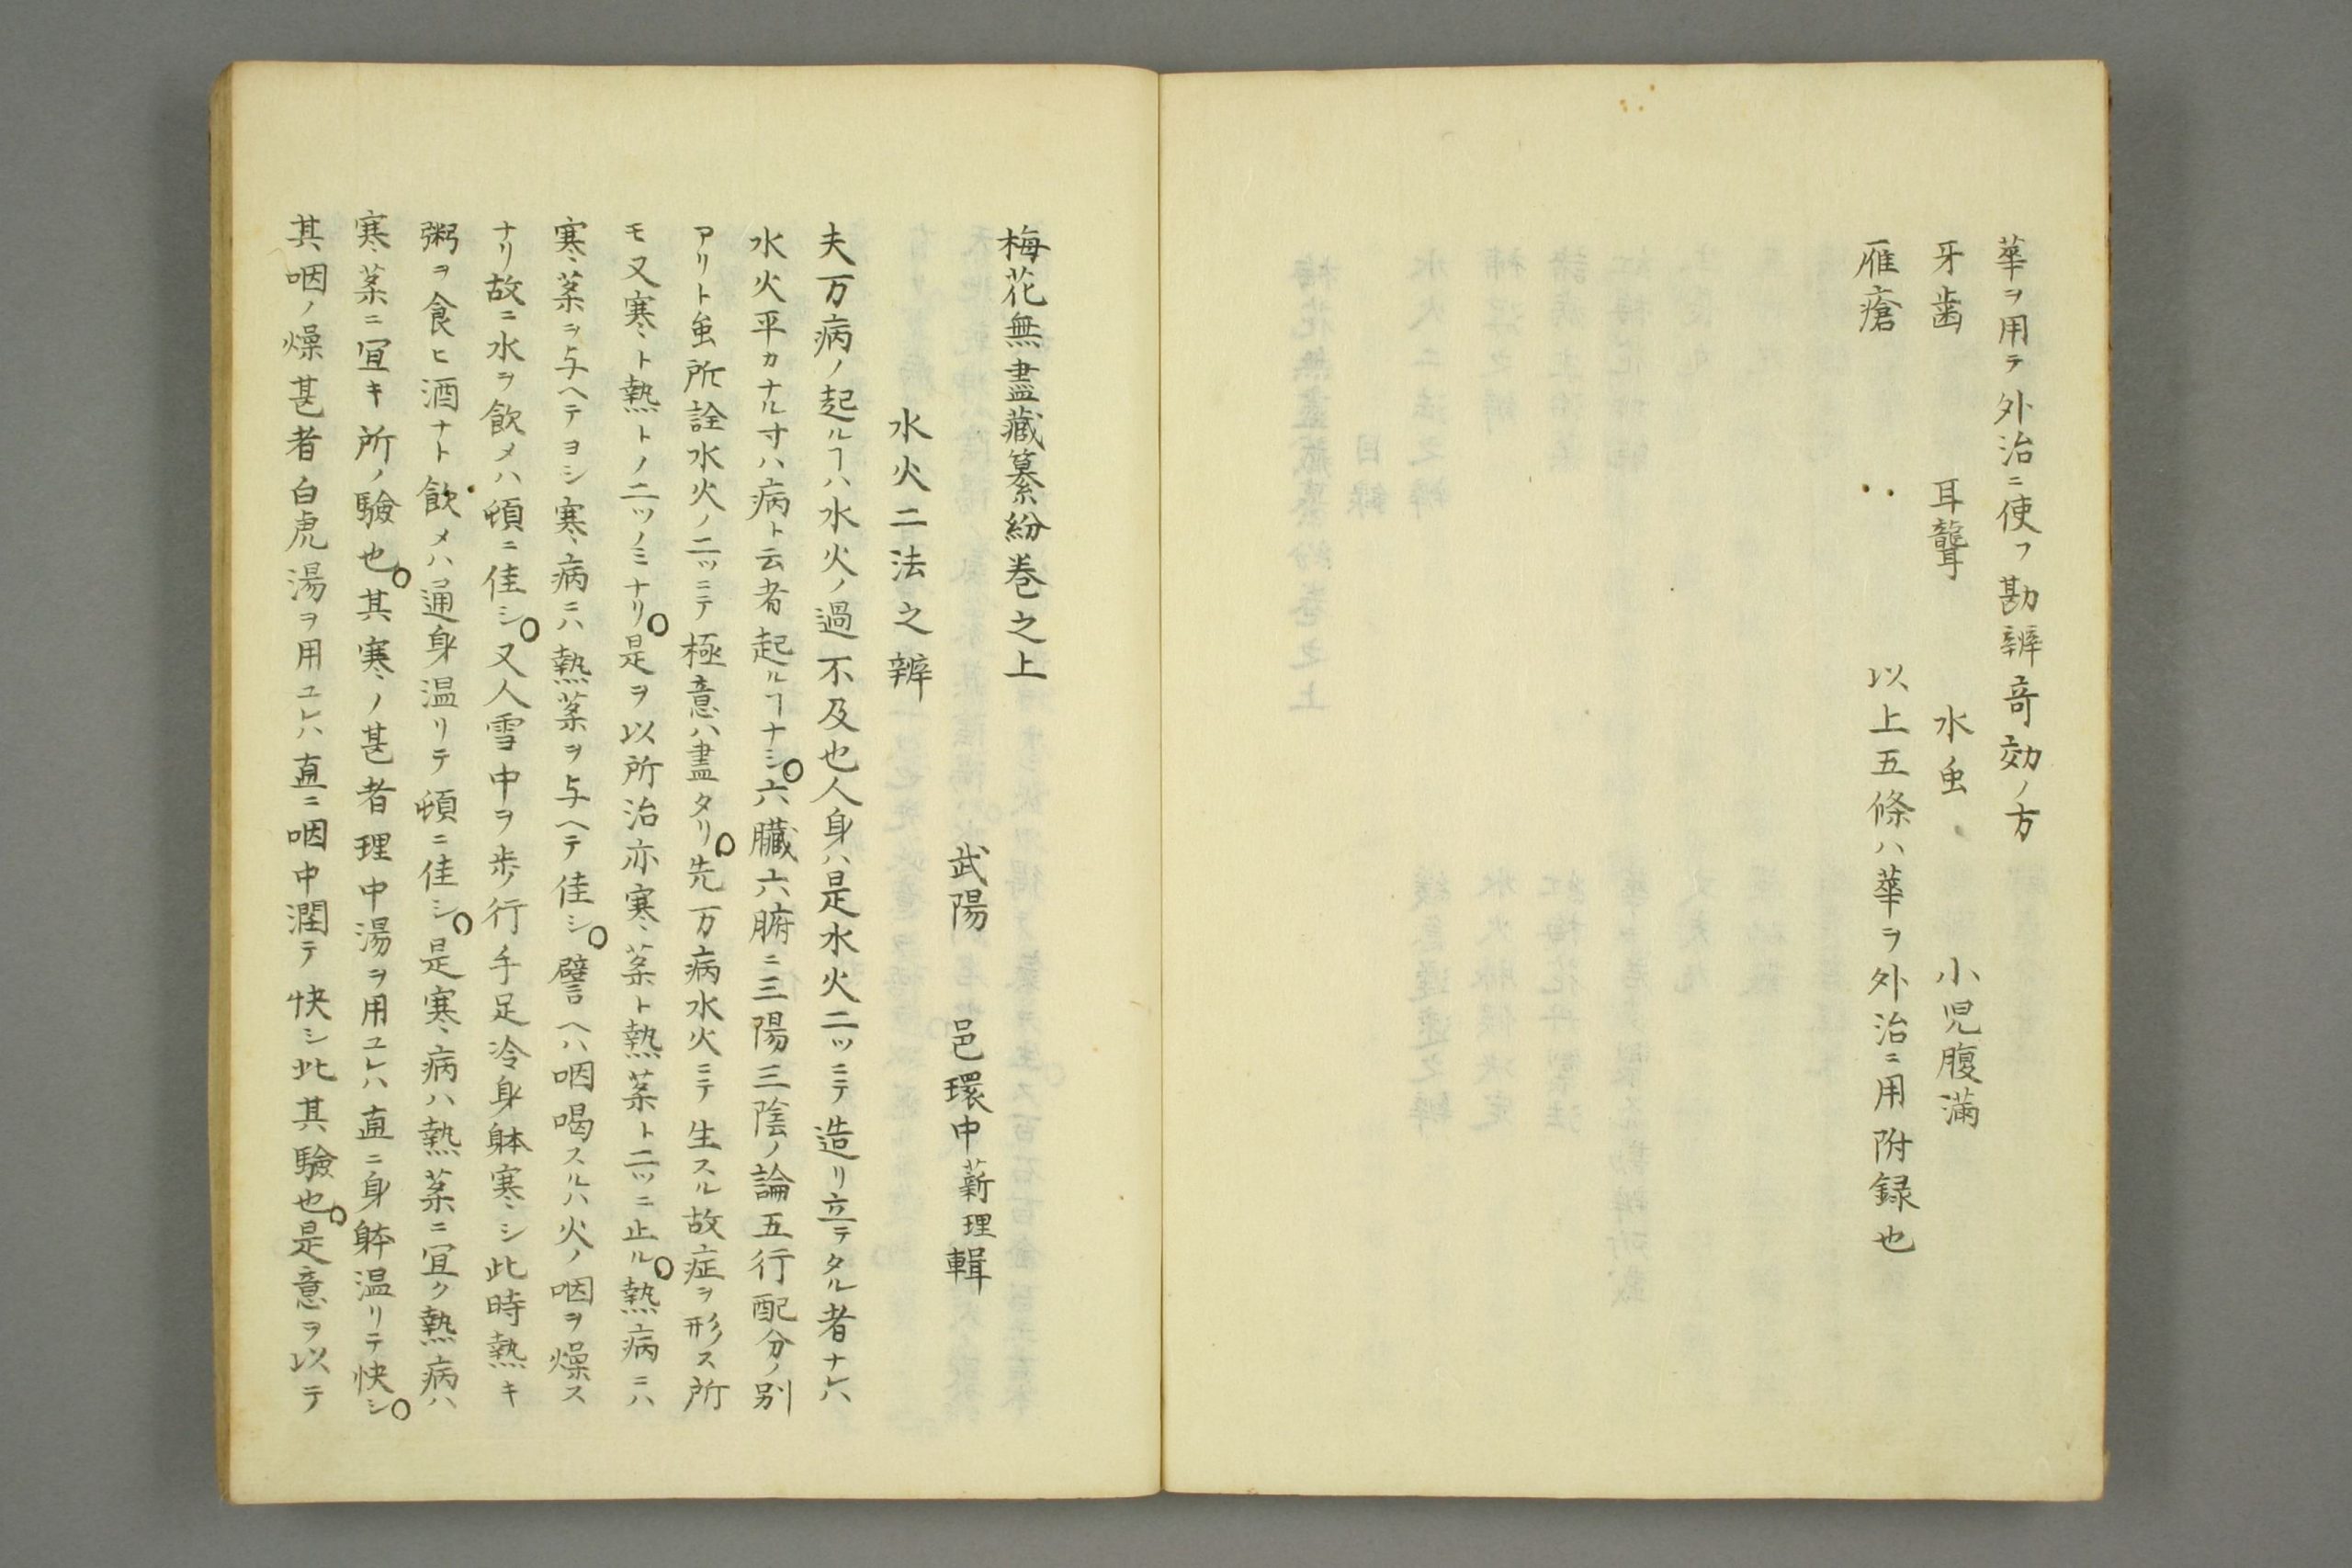 華ヲ用テ外治ニ使フ勘辨竒効ノ方
牙歯　耳聾　水虫　小児腹満
雁瘡　以上五條ハ華ヲ外治ニ用附録也
梅花無盡藏纂紛巻之上
武陽　邑環中薪理輯
水火二法之辨
夫万病ノ起ルヿハ水火ノ過不及也人身ハ是水火二ツニテ造リ立テタル者ナレハ
水火平カナル寸ハ病ト云者起ルヿナシ○六臓六腑ニ三陽三陰ノ論五行配分ノ別
アリト虽所詮水火ノ二ツニテ極意ハ盡タリ○先万病水火ニテ生スル故症ヲ形ス所
モ又寒ト熱トノ二ツノミナリ○是ヲ以所治亦寒薬ト熱薬ト二ツニ止ル○熱病ニハ
寒薬ヲ与ヘテヨシ寒病ニハ熱薬ヲ与ヘテ佳シ○譬ヘハ咽喝スルハ火ノ咽ヲ燥ス
ナリ故ニ水ヲ飲メハ頓ニ佳シ○又人雪中ヲ歩行手足冷身躰寒シ此時熱キ
粥ヲ食ヒ酒ナト飲メハ通身温リテ頓ニ佳シ○是寒病ハ熱薬ニ宜ク熱病ハ
寒薬ニ宜キ所ノ驗也○其寒ノ甚者理中湯ヲ用ユレハ直ニ身躰温リテ快シ○
其咽ノ燥甚者白虎湯ヲ用ユレハ直ニ咽中潤テ快シ此其驗也○是意ヲ以テ